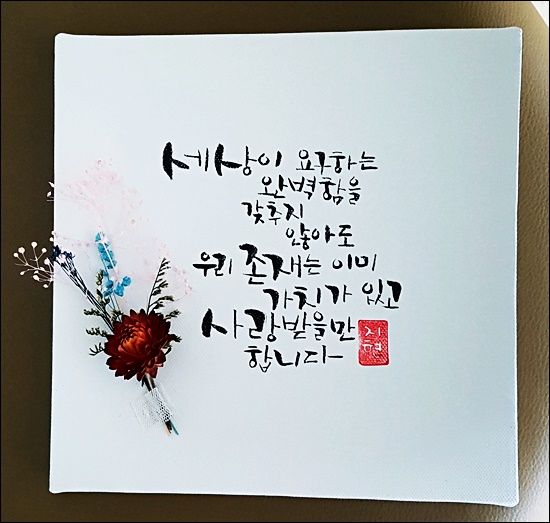 세상이 요구하는
완벽함을
갖추지
않아도
우리 존재는 이미
가치가 있고
사랑받을만
합니다
지현